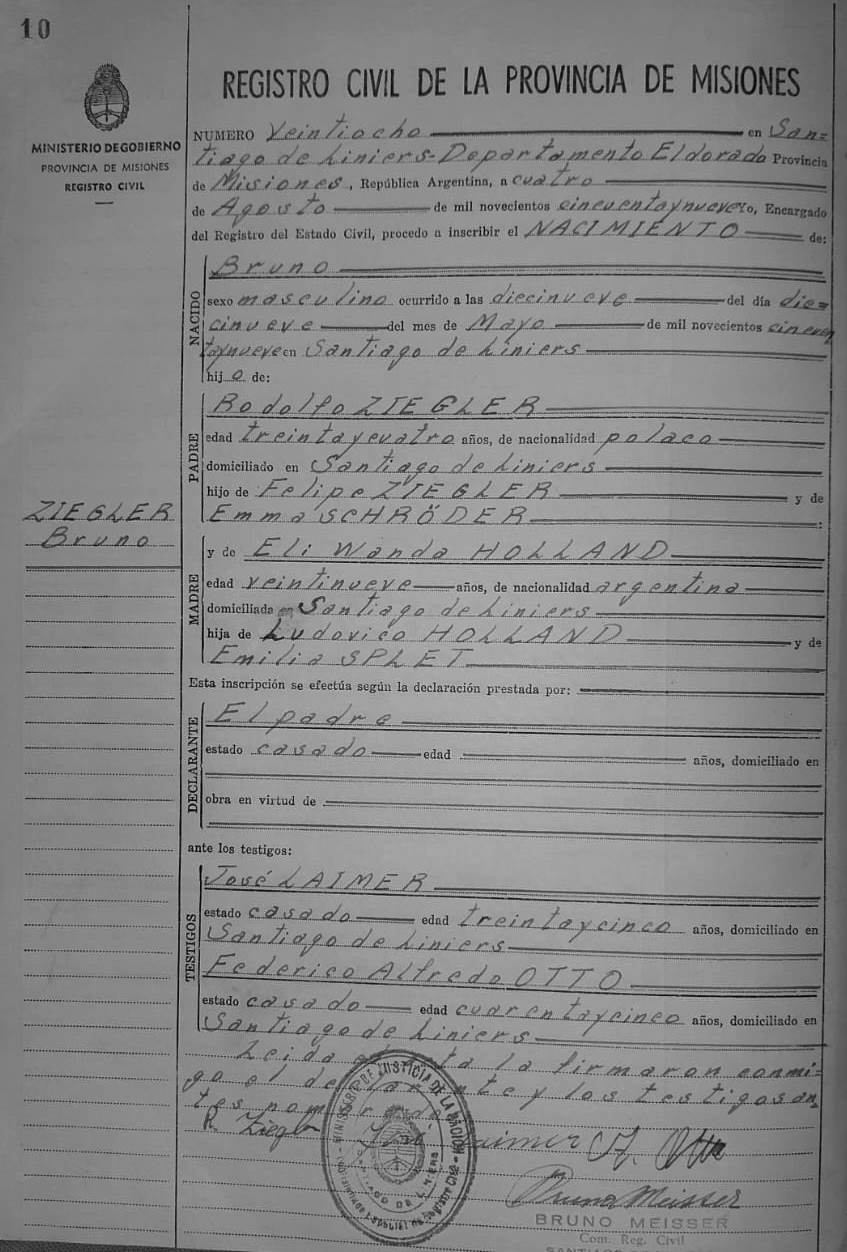 10
MINISTERIO DE GOBIERNO
PROVINCIA DE MISIONES
REGISTRO CIVIL
REGISTRO CIVIL DE LA PROVINCIA DE MISIONES
NUMERO Veintiocho en San=
tiago de Liniers-Departamento Eldorado Provincia
de Misiones, República Argentina, a cuatro
de Agosto de mil novecientos cincuentaynueve Yo, Encargado
del Registro del Estado Civil, procedo a inscribir el NACIMIENTO de:
NACIDO
Bruno
sexo masculino ocurrido a las diecinueve del día die=
cinueve del mes de Mayo de mil novecientos cincuen
taynueve en Santiago de Liniers
hijo de:
PADRE
Rodolfo ZIEGLER
edad treintaycuatro años, de nacionalidad polaco
domiciliado en Santiago de Liniers
hijo de Felipe ZIEGLER y de
Emma SCHRÖDER :
ZIEGLER
Bruno
MADRE
y de Eli Wanda HOLLAND
edad veintinueve años, de nacionalidad argentina
domiciliada en Santiago de Liniers
hija de Ludovico HOLLAND y de
Emilia SPLET
Esta inscripción se efectúa según la declaración prestada por:
DECLARANTE
El padre
estado casado edad años, domiciliado en
obra en virtud de
ante los testigos:
TESTIGOS
José LAIMER
estado casado edad treintaycinco años, domiciliado en
Santiago de Liniers
Federico Alfredo OTTO
estado casado edad cuarentaycinco años, domiciliado en
Santiago de Liniers
Leida la firmaron conmi=
go el y los testigos an
tes
R. Ziegler José Laimer A. Otto
MINISTERIO DE JUSTICIA DE LA NACION
Bruno Meisser
BRUNO MEISSER
Com. Reg. Civil